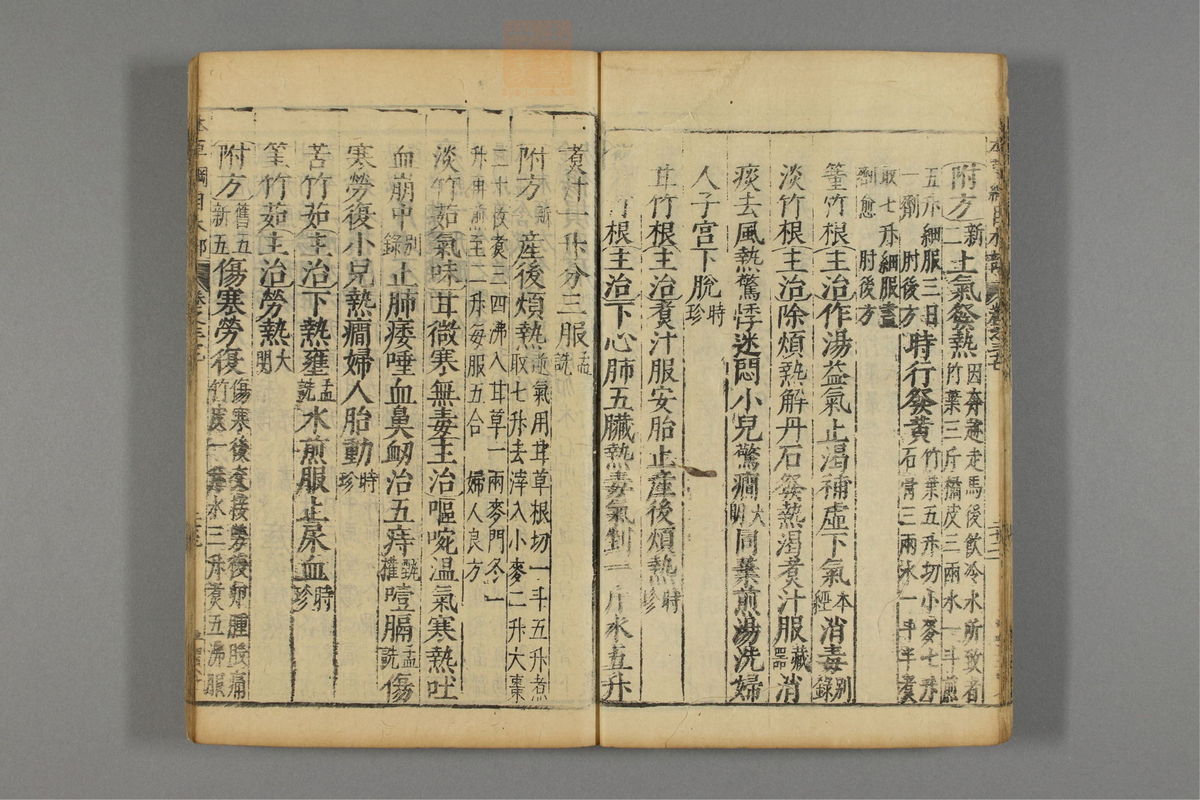 附方新二上氣發熱因奔趁走馬後飲冷水所致者竹葉三斤橘皮三兩水一斗煎
五升細服三日一劑肘後方時行發黃竹葉五升切小麥七升石膏三兩水一斗半煮
取七升細服盡劑愈肘後方
篁竹根主治作湯益氣止渴補虛下氣本經消毒別錄
淡竹根主治除煩熱解丹石發熱渴煮汁服藏器消
痰去風熱驚悸迷悶小兒驚癎大明同葉煎湯洗婦
人子宮下脫時珍
苷竹根主治煮汁服安胎止產後煩熱時珍
竹根主治下心肺五臟熱毒氣剉一斤水五升
煮汁一升分三服孟詵
附方新一產後煩熱逆氣用甘草根切一斗五升煮取七升去滓入小麥二升大棗
二十枚煮三四沸入甘草一兩麥門冬一升再煎至二升每服五合 婦人良方
淡竹茹氣味甘微寒無毒主治嘔啘溫氣寒熱吐
血崩中別錄止肺痿唾血鼻衄治五痔甄權噎膈孟詵傷
寒勞復小兒熱癎婦人胎動時珍
苦竹茹主治下熱壅孟詵水煎服止尿血時珍
筀竹茹主治勞熱大明
附方舊五新五傷寒勞復傷寒後交接勞復卵腫股痛竹皮一升水三升煮五沸服
本草綱目木部